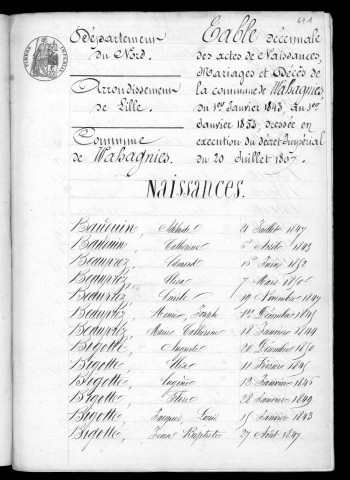 Département
du Nord.
Arrondissement
de Lille.
Commune
de Wahagnies.
Table décennale
des actes de Naissances,
Mariages et Décès de
la commune de Wahagnies
du 1er Janvier 1843, au 1er
Janvier 1853, dressée en
exécution du décret Impérial
du 20 Juillet 1807.
Naissances.
Bauduin, 21 Juillet 1847
Bauduin, Catherine 1843
Beauprez, 1850
Beauprez, Elisa 7 Mars
Beauprez, Emile 19 Novembre 1847
Beauprez, Joseph 1er Décembre
Beauprez, Marie Catherine 18 Janvier 1844
Bigotte, Auguste 20 Décembre 1850
Bigotte, Elise 11 Février
Bigotte, Eugénie 12 Janvier 1846
Bigotte, 28 Janvier 1849
Bigotte, Jacques Louis 15 Janvier 1843
Bigotte, Jean Baptiste 27 Août 1847